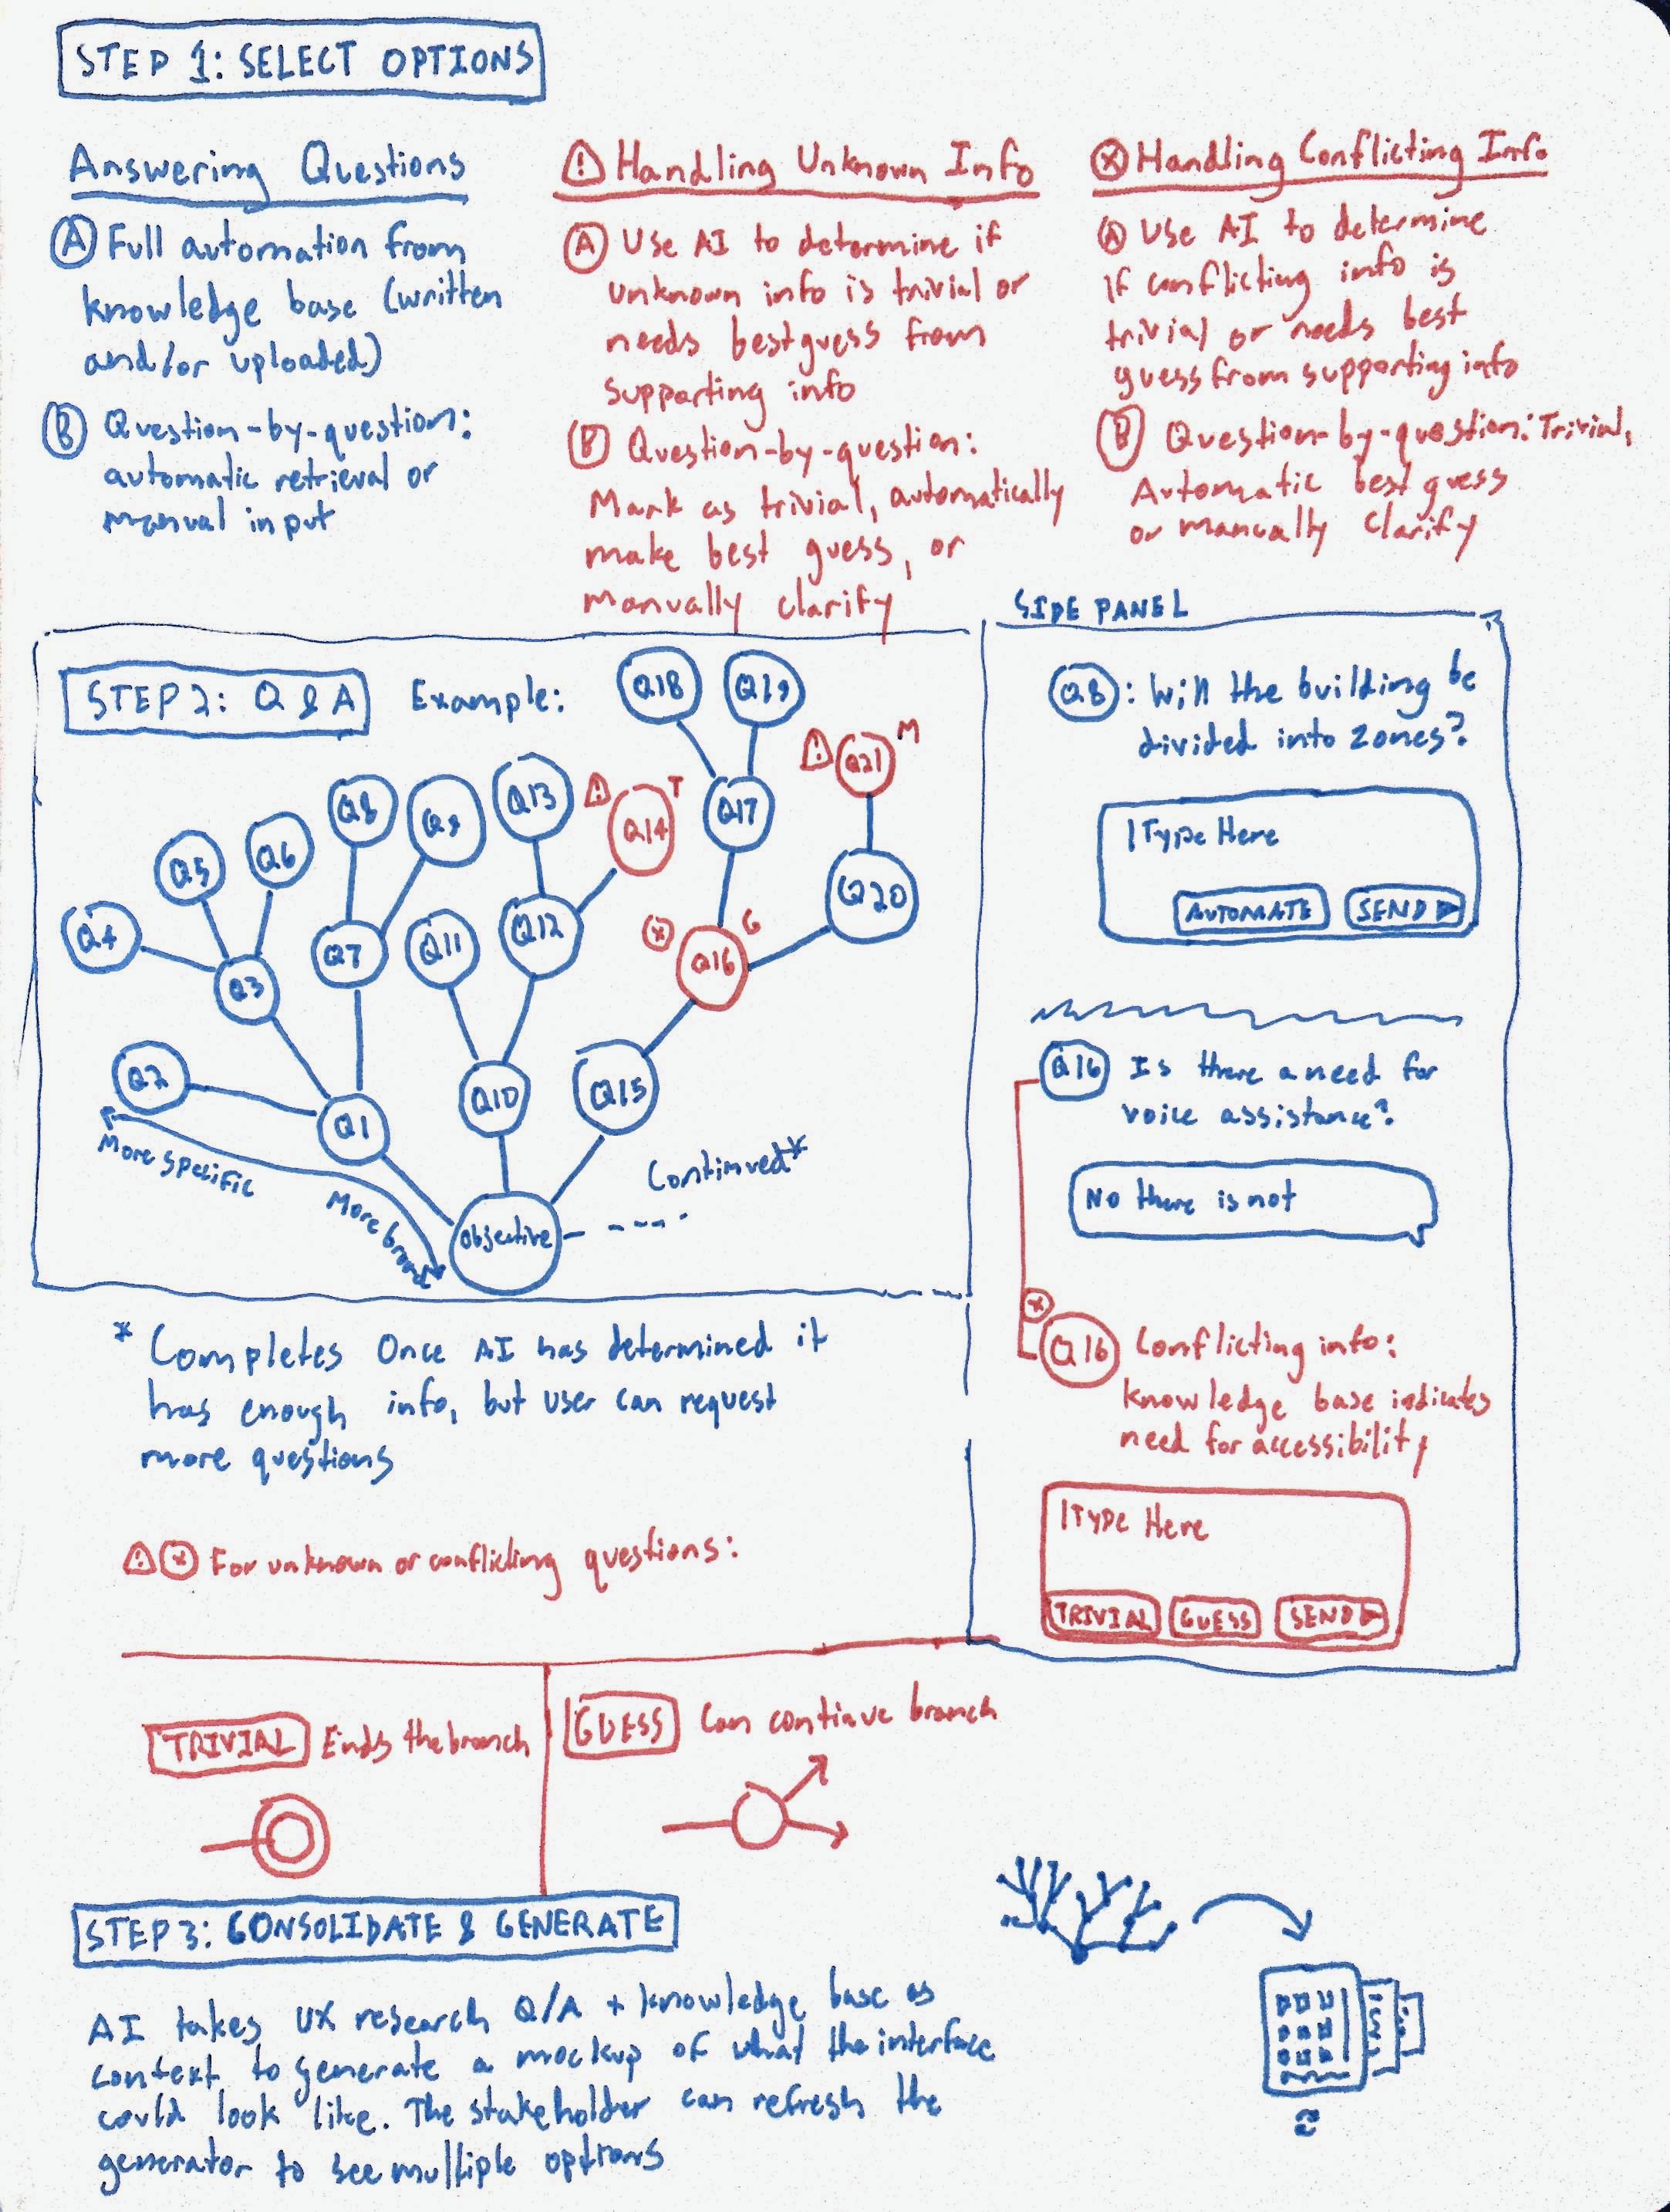 STEP 1: SELECT OPTIONS
Answering Questions
A Full automation from
knowledge base (written
and/or uploaded)
B Question-by-question:
automatic retrieval or
manual input
! Handling Unknown Info
A Use AI to determine if
unknown info is trivial or
needs best guess from
supporting info
B Question-by-question:
Mark as trivial, automatically
make best guess, or
manually clarify
X Handling Conflicting Info
A Use AI to determine
if conflicting info is
trivial or needs best
guess from supporting info
B Question-by-question: Trivial,
Automatic best guess
or manually clarify
STEP 2: Q & A
Example:
Q18
Q19
! Q21 M
Q8
Q9
Q13
! Q14 T
Q17
Q5
Q6
Q20
Q4
Q7
Q11
Q12
X Q16 G
Q3
Q2
Q1
Q10
Q15
More specific
More broad
Objective
Continued*
* Completes Once AI has determined it
has enough info, but user can request
more questions
SIDE PANEL
Q8: Will the building be
divided into zones?
|Type Here
AUTOMATE
SEND
Q16 Is there a need for
voice assistance?
No there is not
X
Q16 Conflicting info:
knowledge base indicates
need for accessibility
|Type Here
TRIVIAL
GUESS
SEND
! X For unknown or conflicting questions:
TRIVIAL Ends the branch
GUESS Can continue branch
STEP 3: CONSOLIDATE & GENERATE
AI takes UX research Q/A + knowledge base as
context to generate a mockup of what the interface
could look like. The stakeholder can refresh the
generator to see multiple options